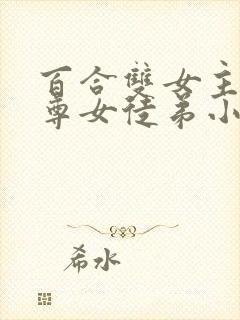 百合雙女主
尊女徒弟小
希水